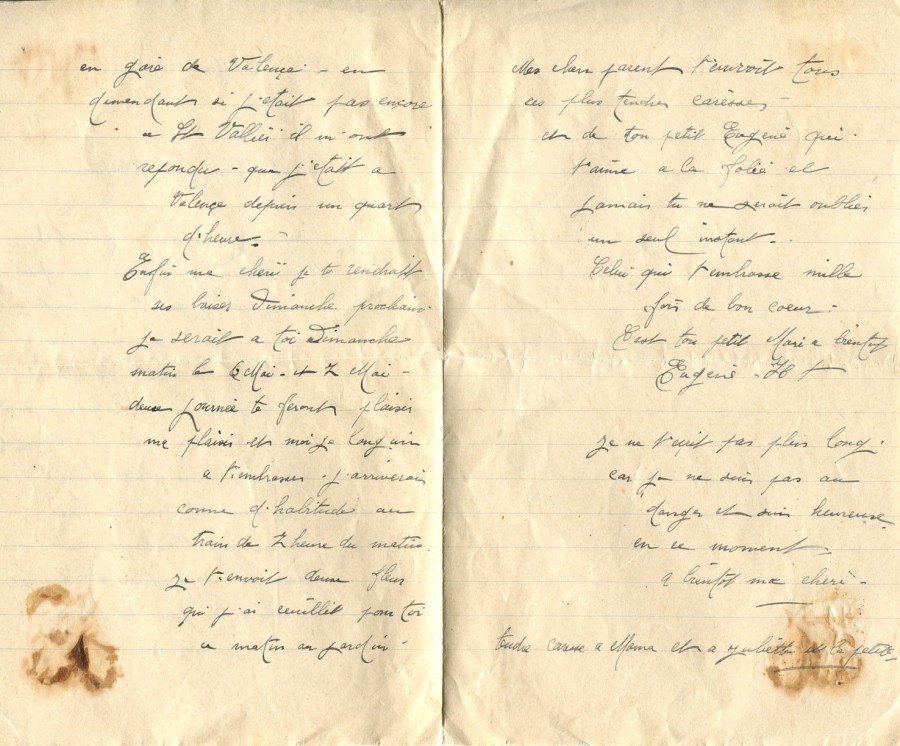 en gare de Valençe - en
dimendant si j'etait pas encore
a St Vallié il m'ont
repondu - que j'etait a
Valençe depuis un quart
d'heure. -
Enfin ma cherï je te rendrait
ses baiser Dimanche prochain
je serait a toi Dimanche
matin le 6 Mai - et 7 Mai -
deux journée te feront plaisir
ma et moi je
a t'embrasser - j'arriverai
comme d'habitude au
train de 7 heure du matin.
je t'envoit deux fleur
qui j'ai ceuillit pour toi
ce matin au jardin -
Mes cher parent t'envoit tous
ses plus tendres caresses -
et de ton petit Eugené qui
t'aime a la folie et
jamais tu ne serait oublié
un seul instant.
Celui qui t'embrasse mille
fois de bon coeur.
C'est ton petit Mari a bientot
Eugené - H
je ne t'ecrit pas plus long.
car je ne suis pas au
danger et suis heureuse
en ce moment.
A bientot ma cheré -
tendre caresse a Mama et a Juliette et la petite